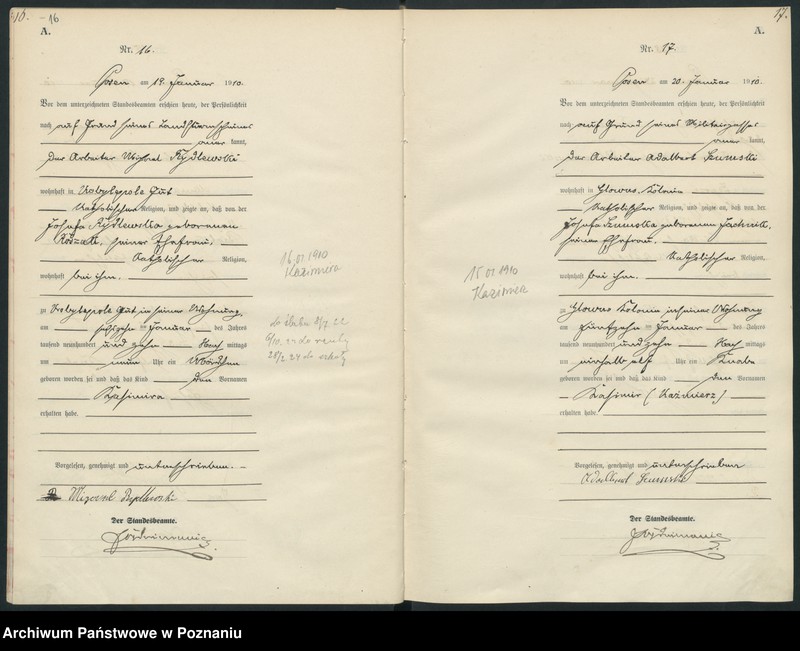 16.
16
A.
Nr. 16.
Posen am 19. Januar 1910.
Vor dem unterzeichneten Standesbeamten erschien heute, der Persönlichkeit
nach auf Grund seines Landsturmscheines
kannt,
der Arbeiter Michael Rydlewski
wohnhaft in Kobylepole Gut
Katholischer Religion, und zeigte an, daß von der
Josefa Rydlewska geborenen
seiner Ehefrau,
Katholischer Religion,
wohnhaft bei ihm.
zu Kobylepole Gut in seiner Wohnung,
am sechszehn ten Januar des Jahres
tausend neunhundert und zehn Nach mittags
um neun Uhr ein Mädchen
geboren worden sei und daß das Kind den Vornamen
Kasimira
erhalten habe.
Vorgelesen, genehmigt und unterschrieben.
Der Standesbeamte.
16.01.1910
Kazimiera
17.
A.
Nr. 17.
Posen am 20. Januar 1910.
Vor dem unterzeichneten Standesbeamten erschien heute, der Persönlichkeit
nach auf Grund seines Militairpasses
kannt,
der Arbeiter Adalbert Szumski
wohnhaft in Glowno Kolonie
Katholischer Religion, und zeigte an, daß von der
Josefa Szumska geborenen
seiner Ehefrau,
Katholischer Religion,
wohnhaft bei ihm.
zu Glowno Kolonie in seiner Wohnung
am fünfzehn ten Januar des Jahres
tausend neunhundert und zehn Nach mittags
um einhalb elf Uhr ein Knabe
geboren worden sei und daß das Kind den Vornamen
Kasimir (Kazimierz)
erhalten habe.
Vorgelesen, genehmigt und unterschrieben
Adalbert Szumski
Der Standesbeamte.
15.01.1910
Archiwum Państwowe w Poznaniu